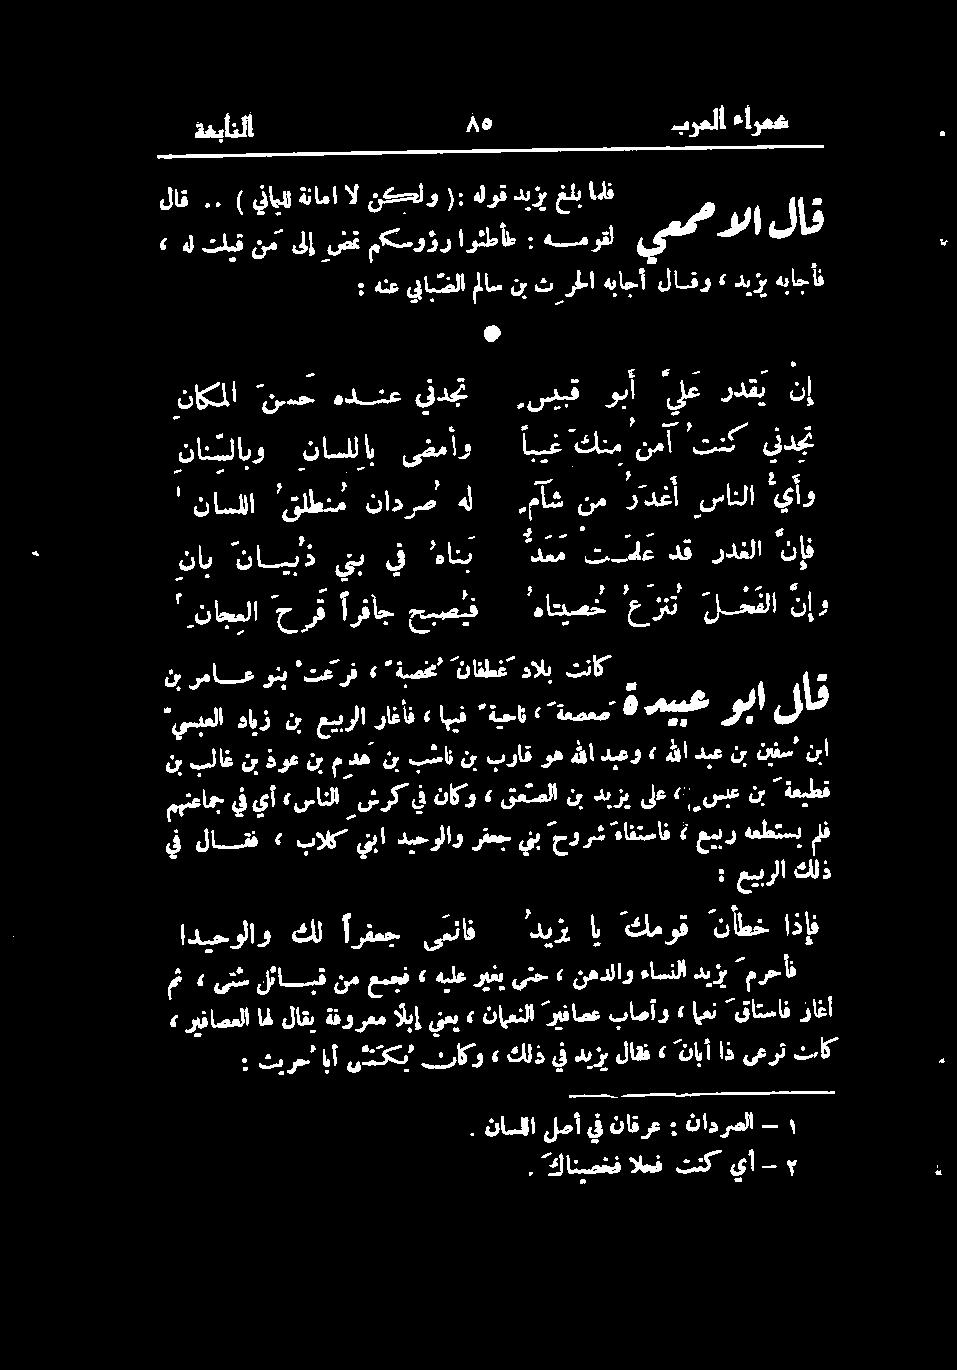 شعراء العرب ٨٥ النابغة
قال الاصمعي فلما بلغ يزيد قوله :( ولكن لا امانة لليماني ) .. قال
لقومه : طأطئوا رؤوسكم تمضِ إلى مَن قيلت له ،
فأجابه يزيد ، وقال أجابه الحرث بن سالم الضّبابي عنه :
إنْ يَقدر عَليَّ أَبو قبيسٍ تجدني عنده حَسنَ المكانِ
تجدني كنتُ آمنُ منكَ غيباً وأمضى باللسانِ وبالسِّنانِ
وأيُّ الناسِ أغدَرُ من شآمٍ له صُردان مُنطلقُ اللسان ١
فإنّ الغدر قد عَلمتْ مَعَدٌّ بَناهُ في بني ذُبيانَ بانِ
وإنَّ الفَحْلَ تُنزَعُ خُصيتاهُ فيُصبح جافراً قَرِحَ العِجانِ ٢
قال ابو عبيدة كانت بلاد غطفانَ مُخصبة ، فرَعتْ بنو عامر بن
صعصعة ، ناحية فيها ، فأغار الربيع بن زياد العبسي
ابن سُفين بن عبد الله ، وعبد الله هو قارب بن ناشب بن هَدم بن عوذ بن غالب بن
قطيعةَ بن عبسٍ ، على يزيد بن الصّعق ، وكان في كَرشِ الناس، أي في جماعتهم
فلم يستطعه ربيع ، فاستفاءَ سُروحَ بني جعفر والوحيد ابني كلاب ، فقال في
ذلك الربيع :
فإذا خطأنَ قومكَ يا يزيدُ فانعَى جعفراً لك والوحيدا
فأحرمَ يزيد النساء والدهن ، حتى يغير عليه ، فجمع من قبائل شتى ، ثم
أغار فاستاقَ نعما ، وأصاب عصافيرَ النعمان ، يعني إبلاً معروفة يقال لها العصافير ،
كانت ترعى اذ أبانَ ، فقال يزيد في ذلك ، وكانت يُكَنَّى أبا حُريث :
١ – الصردان : عرقان في أصل اللسان .
٢ – أي كنت فحلا فخصيناكَ .